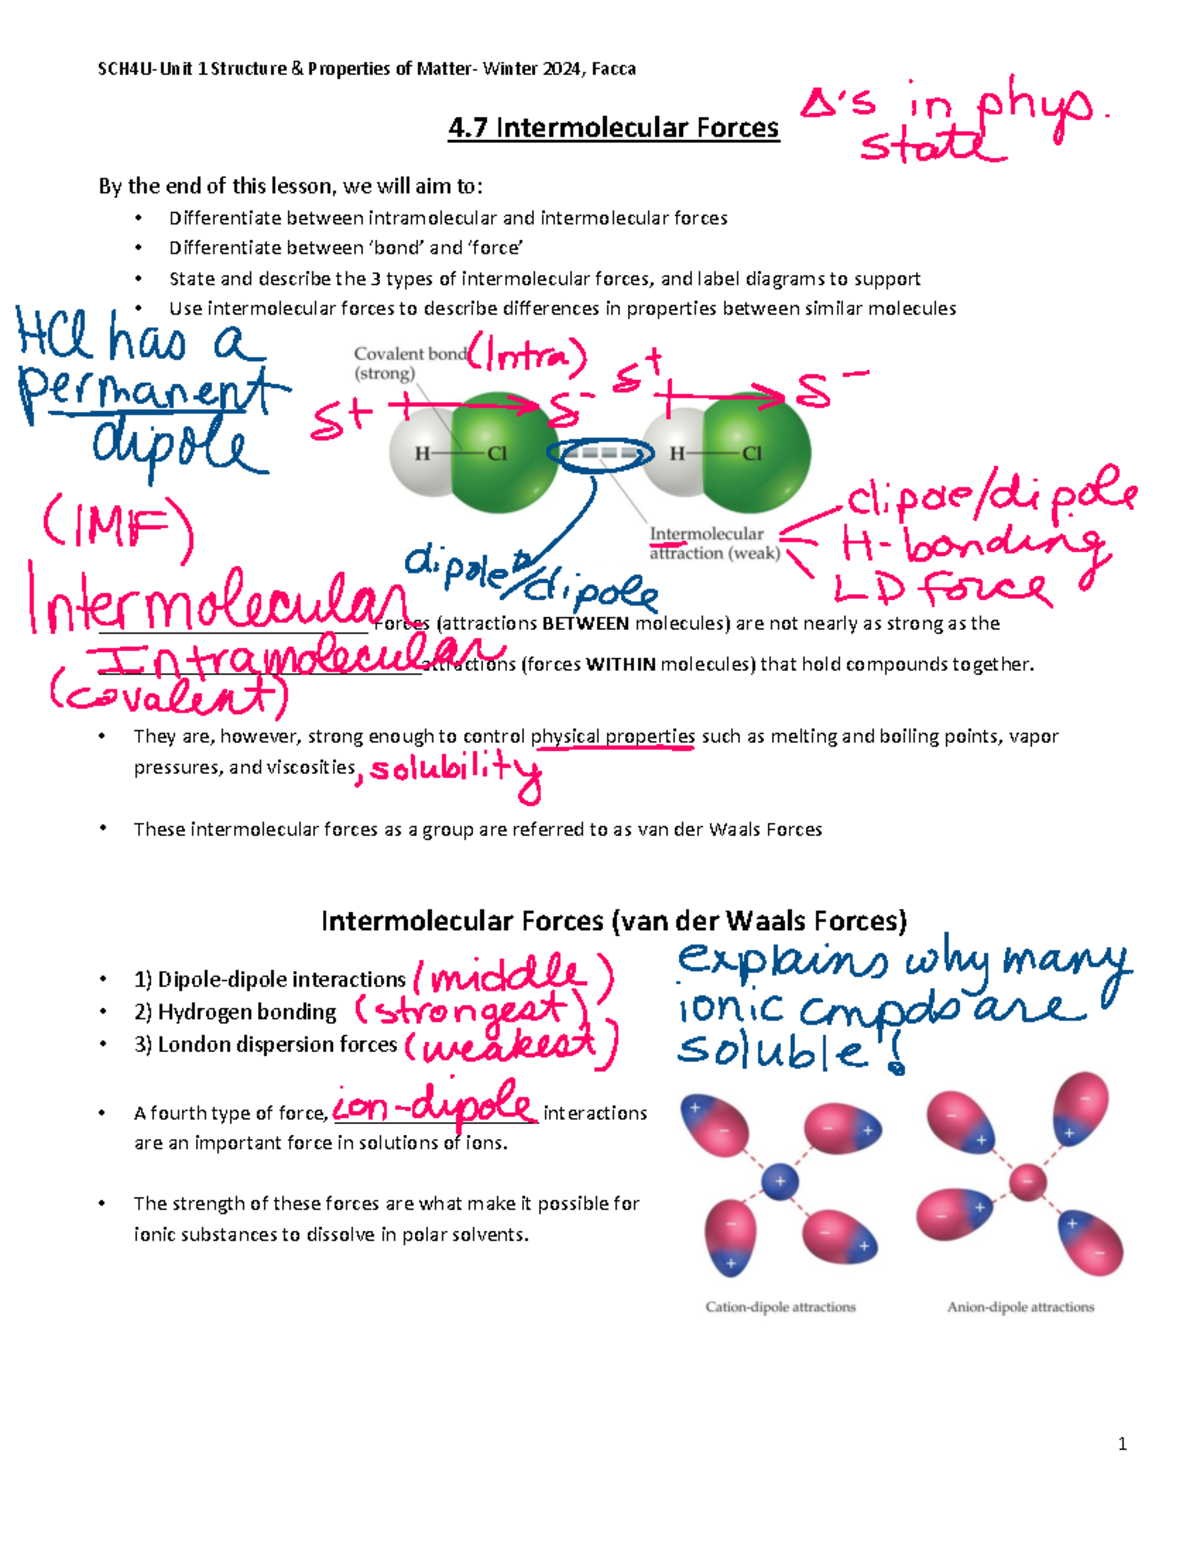 SCH4U-Unit 1 Structure & Properties of Matter- Winter 2024, Facca
4.7 Intermolecular Forces
Δ's in phys.
state
By the end of this lesson, we will aim to:
• Differentiate between intramolecular and intermolecular forces
• Differentiate between ‘bond’ and ‘force’
• State and describe the 3 types of intermolecular forces, and label diagrams to support
• Use intermolecular forces to describe differences in properties between similar molecules
HCl has a
permanent
dipole
Covalent bond (Intra)
(strong)
δ+ δ- δ+ δ-
H Cl H Cl
Intermolecular
attraction (weak)
dipole/dipole
H-bonding
LD force
dipole/dipole
(IMF)
Intermolecular Forces (attractions BETWEEN molecules) are not nearly as strong as the
Intramolecular attractions (forces WITHIN molecules) that hold compounds together.
(covalent)
• They are, however, strong enough to control physical properties such as melting and boiling points, vapor
pressures, and viscosities, solubility
• These intermolecular forces as a group are referred to as van der Waals Forces
Intermolecular Forces (van der Waals Forces)
• 1) Dipole-dipole interactions (middle)
• 2) Hydrogen bonding (strongest)
• 3) London dispersion forces (weakest)
explains why many
ionic cmpds are
soluble!
• A fourth type of force, ion-dipole interactions
are an important force in solutions of ions.
• The strength of these forces are what make it possible for
ionic substances to dissolve in polar solvents.
+ - - + + - + - +
- + - + - - + + -
Cation-dipole attractions
Anion-dipole attractions
1